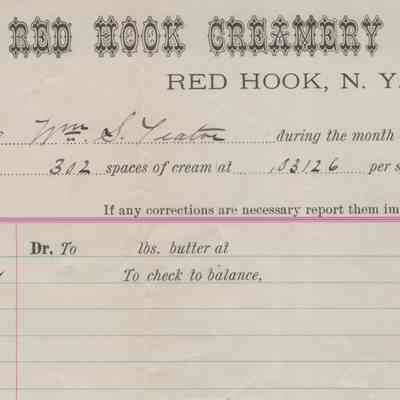 RED HOOK CREAMERY
RED HOOK, N. Y.
Wm. S. Teator during the month
302 spaces of cream at .03126 per s
If any corrections are necessary report them im
Dr. To lbs. butter at
To check to balance,